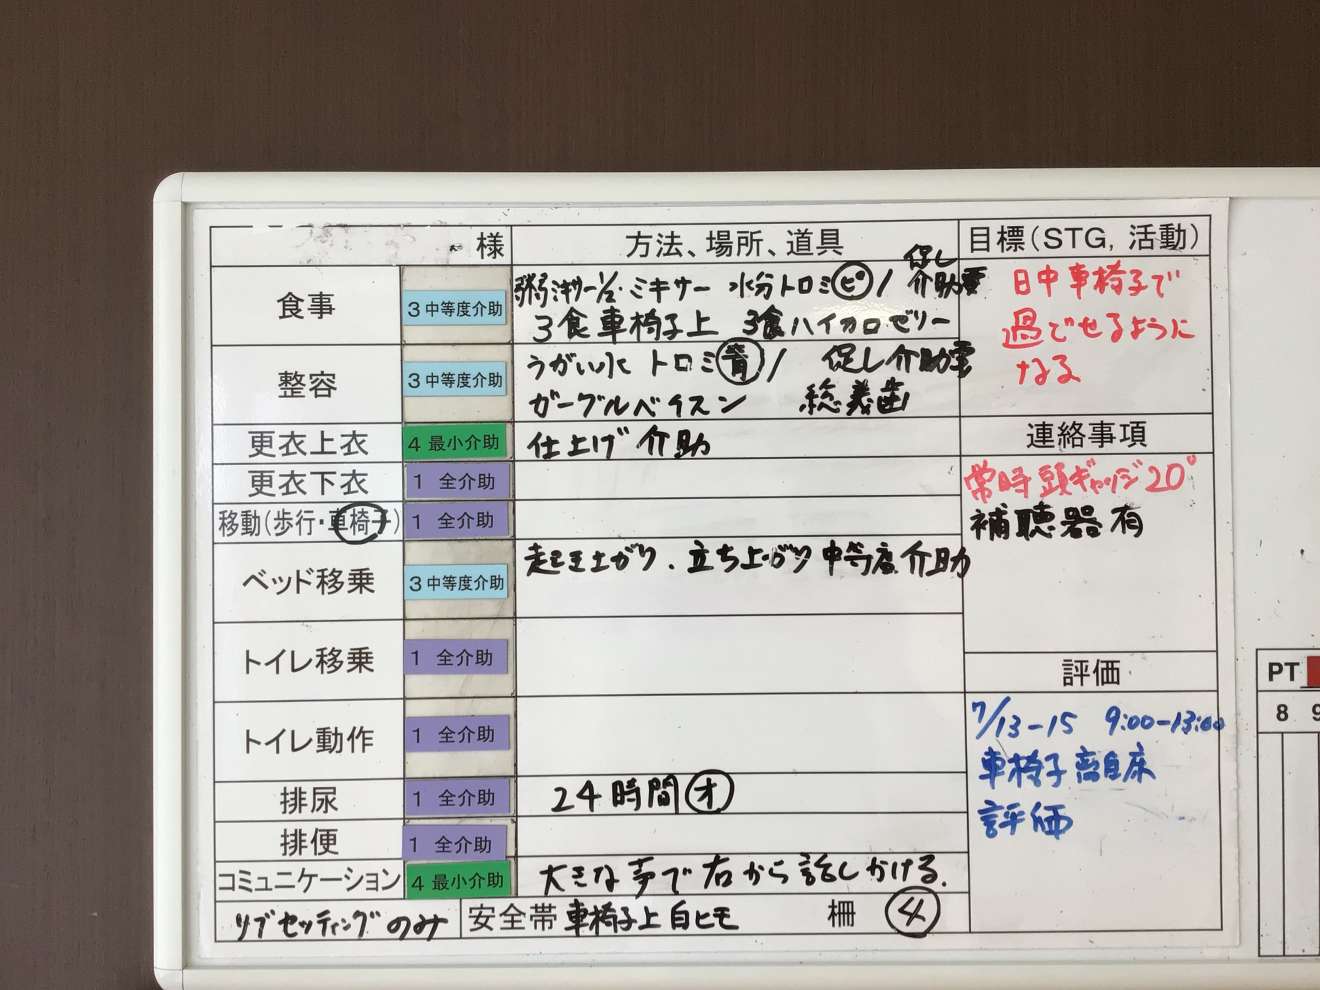 様 方法、場所、道具 目標(STG, 活動)
食事 3 中等度介助
粥ミキサー1/2・ミキサー 水分トロミ ピ / 促し介助要
3食車椅子上 3食ハイカロゼリー
日中車椅子で
過ごせるように
なる
整容 3 中等度介助
うがい水 トロミ 背 / 促し介助要
ガーグルベイスン 総義歯
更衣上衣 4 最小介助 仕上げ介助
連絡事項
更衣下衣 1 全介助
常時頭ギャッジ20°
移動(歩行・車椅子) 1 全介助
補聴器有
ベッド移乗 3 中等度介助 起き上がり、立ち上がり中等度介助
トイレ移乗 1 全介助
評価
7/13-15 9:00-13:00
車椅子離床
評価
トイレ動作 1 全介助
排尿 1 全介助 24時間 オ
排便 1 全介助
コミュニケーション 4 最小介助 大きな声で右から話しかける.
リブセッティングのみ 安全帯 車椅子上白ヒモ 柵 4
PT
8 9